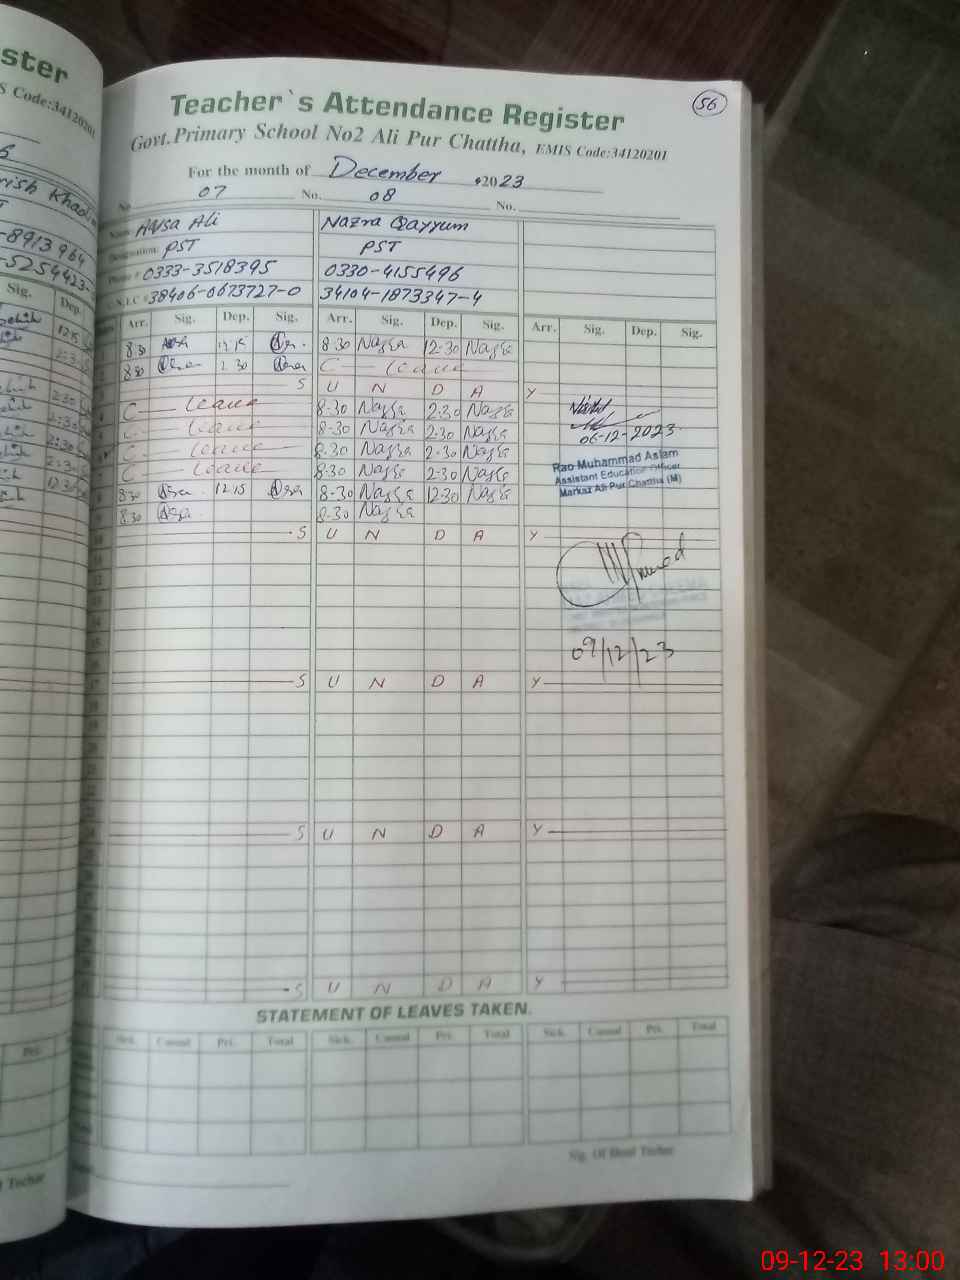 ster
s Code:34120201
rish Khaoli
-8913964
-5254423-
Sig. Dep.
56
Teacher`s Attendance Register
Govt. Primary School No2 Ali Pur Chattha, EMIS Code:34120201
For the month of December 2023
No. 07 No. 08 No.
Name Ansa Ali Nazra Qayyum
Designation: PST PST
Phone # 0333-3518395 0330-4155496
C.N.I.C # 38406-0673727-0 34104-1873347-4
Arr. Sig. Dep. Sig. Arr. Sig. Dep. Sig. Arr. Sig. Dep. Sig.
8.30 12.15 8.30 12.30
8.30 2.30 C — leave
S U N D A Y
C — leave 8-30 2.30
C — leave 8-30 2.30
C — leave 8.30 2.30
C — leave 8.30 2.30
8.30 12.15 8-30 12.30
8.30 8.30
06-12-2023
Rao Muhammad Aslam
Assistant Education Officer
Markaz Ali Pur Chattha (M)
S U N D A Y
09/12/23
S U N D A Y
S U N D A Y
S U N D A Y
STATEMENT OF LEAVES TAKEN.
Sick. Casual Pri. Total Sick. Casual Pri. Total Sick. Casual Pri. Total
Pri.
Sig. Of Head Techer
Techer
09-12-23 13:00